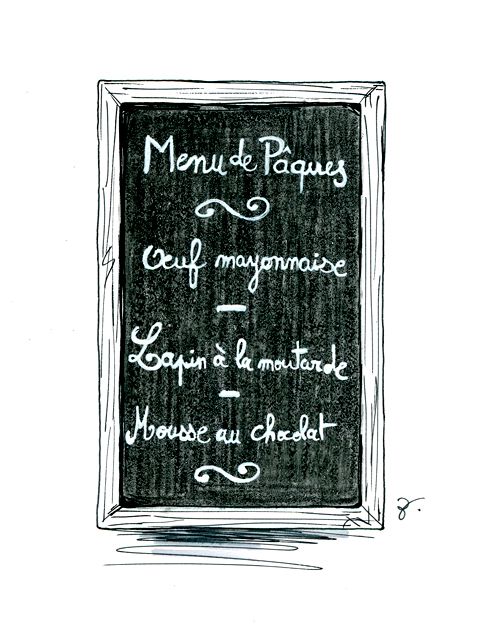 Menu de Pâques
Oeuf mayonnaise
Lapin à la moutarde
Mousse au chocolat